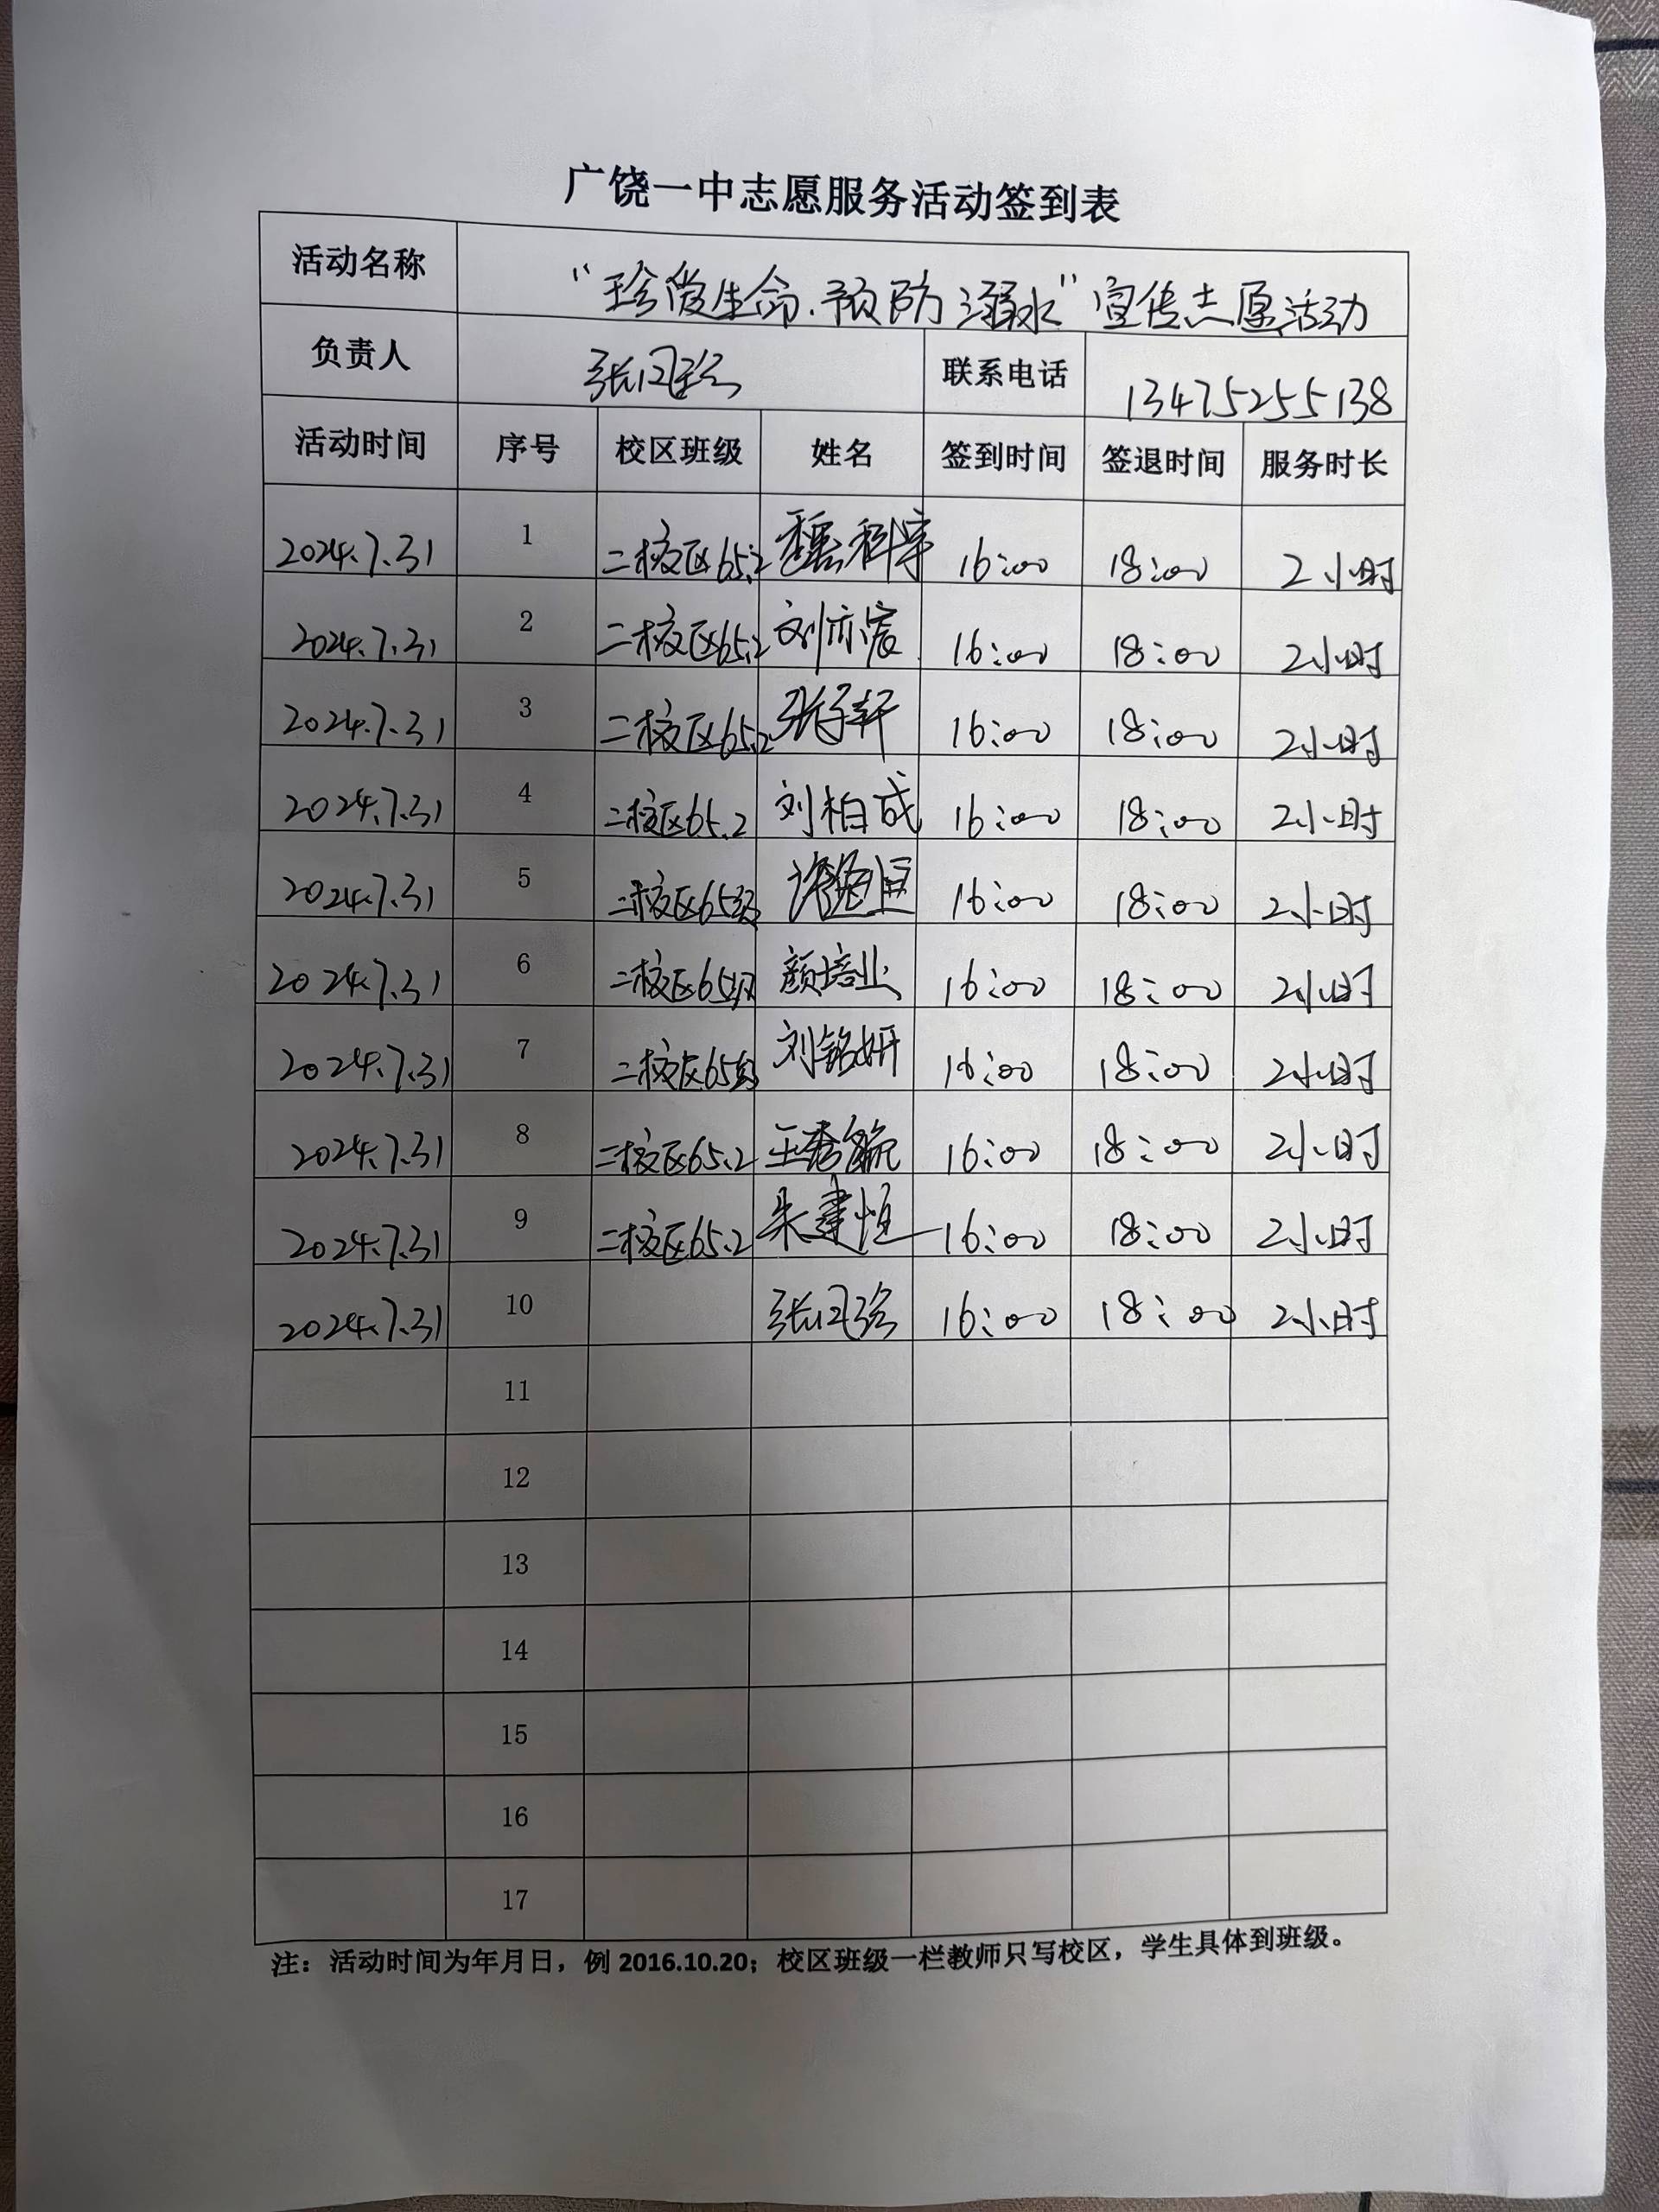 广饶一中志愿服务活动签到表
活动名称 “珍爱生命.预防溺水”宣传志愿活动
负责人 联系电话 13475255138
活动时间 序号 校区班级 姓名 签到时间 签退时间 服务时长
2024.7.31 1 二校区65.2 魏科宇 16:00 18:00 2小时
2024.7.31 2 二校区65.2 刘亦宸 16:00 18:00 2小时
2024.7.31 3 二校区65.2 张子轩 16:00 18:00 2小时
2024.7.31 4 二校区65.2 刘柏成 16:00 18:00 2小时
2024.7.31 5 二校区65级 16:00 18:00 2小时
2024.7.31 6 二校区65级 颜培业 16:00 18:00 2小时
2024.7.31 7 二校区65级 刘铭妍 16:00 18:00 2小时
2024.7.31 8 二校区65.2 16:00 18:00 2小时
2024.7.31 9 二校区65.2 朱建恒 16:00 18:00 2小时
2024.7.31 10 16:00 18:00 2小时
11
12
13
14
15
16
17
注：活动时间为年月日，例 2016.10.20；校区班级一栏教师只写校区，学生具体到班级。